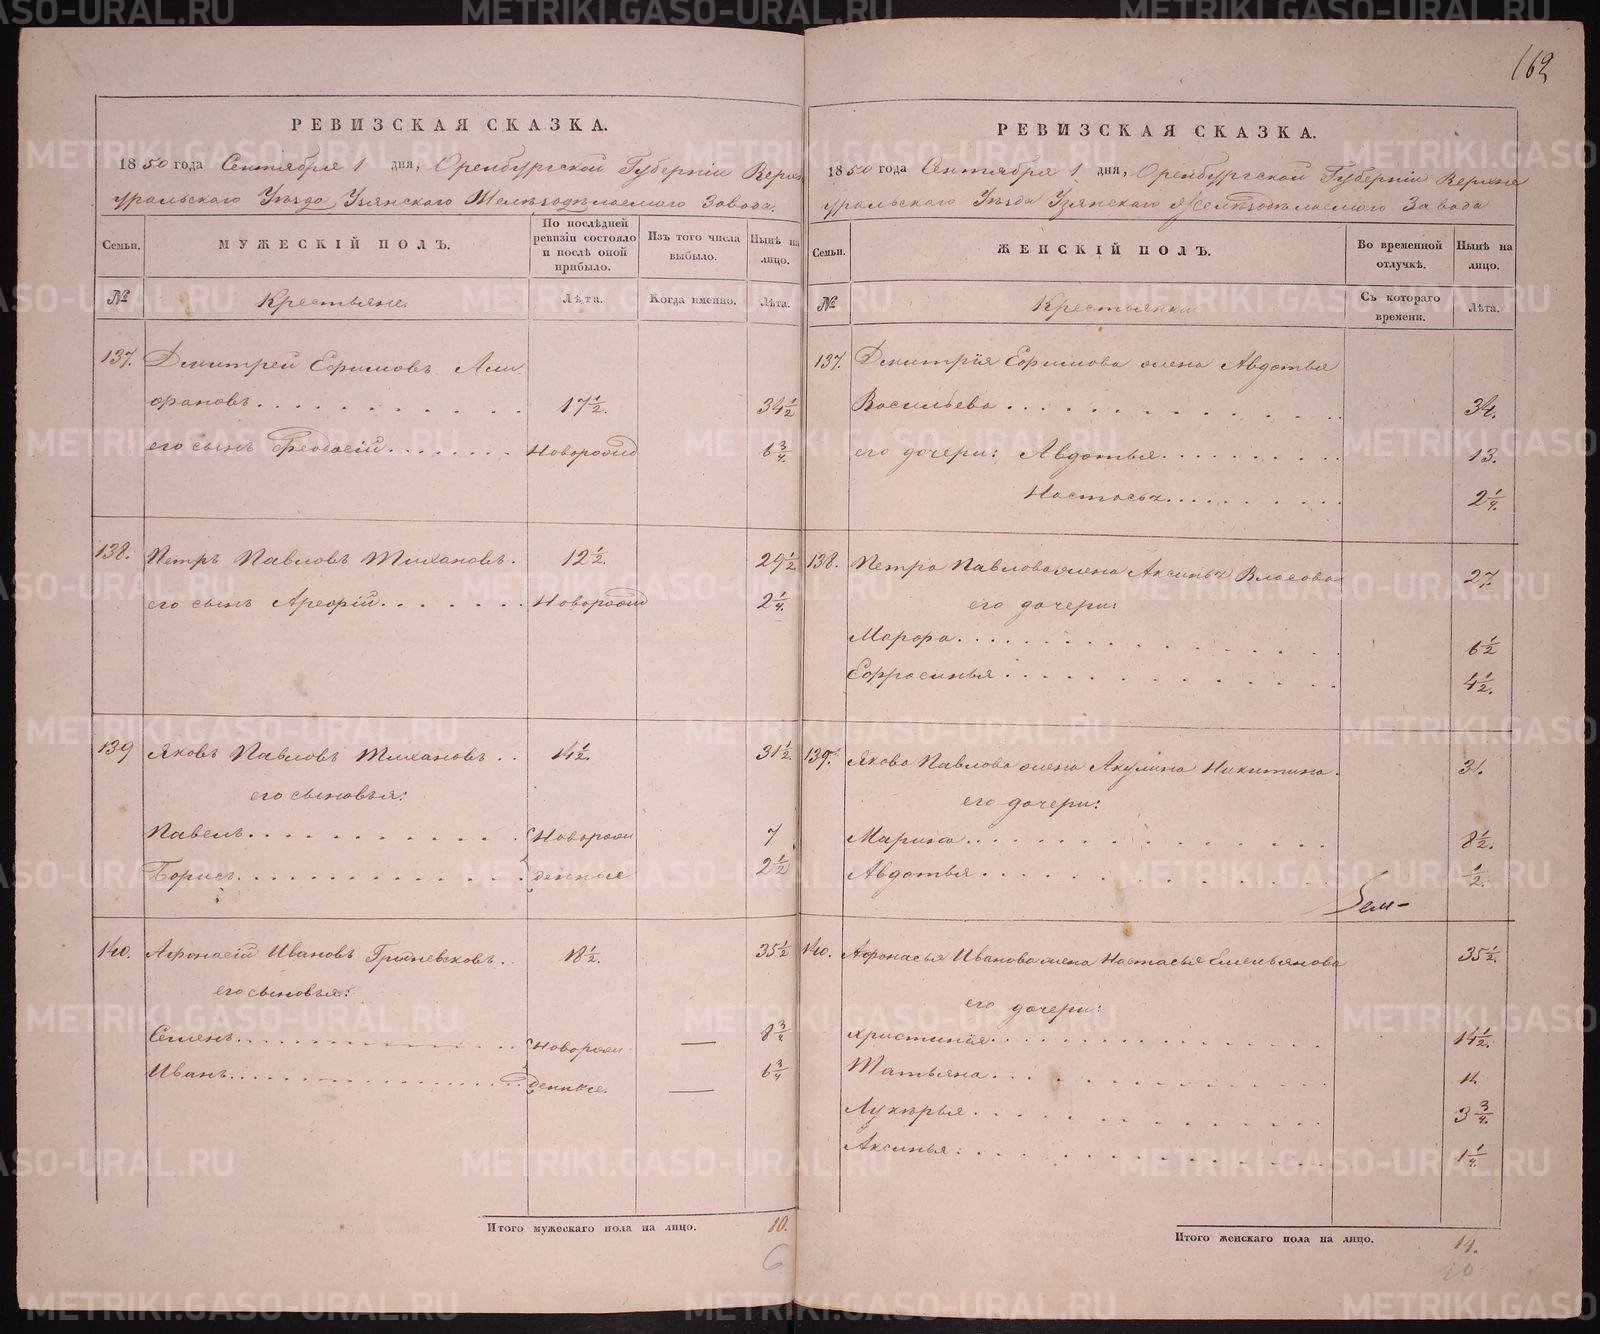 162
РЕВИЗСКАЯ СКАЗКА.
1850 года Сентября 1 дня, Оренбургской Губерніи Верхне
уральскаго Уѣзда Узянскаго Желѣзодѣлаемаго Завода.
Семьи.
МУЖЕСКІЙ ПОЛЪ.
По послѣдней ревизіи состояло и послѣ оной прибыло.
Изъ того числа выбыло.
Нынѣ на лицо.
№
Крестьяне.
Лѣта.
Когда именно.
Лѣта.
137. Дмитрей Ефимовъ
фановъ 17½. 34½
его сынъ Феодосій Новорожд 6¾
138. Петръ Павловъ Тихановъ. 12½. 29½
его сынъ Новорожд 2¼
139 Яковъ Павловъ Тихановъ 14½. 31½
его сыновья:
Павелъ Новорож 7
Борисъ денные 2½
140. Афонасій Ивановъ 18½. 35½
его сыновья:
Семенъ Новорож — 8¾
Иванъ денные — 6¾
Итого мужескаго пола на лицо. 10.
6
РЕВИЗСКАЯ СКАЗКА.
1850 года Сентября 1 дня, Оренбургской Губерніи Верхне
уральскаго Уѣзда Узянскаго Желѣзодѣлаемаго Завода
Семьи.
ЖЕНСКІЙ ПОЛЪ.
Во временной отлучкѣ.
Нынѣ на лицо.
№
Крестьянки
Съ котораго времени.
Лѣта.
137. Дмитрія Ефимова жена Авдотья
Васильева 34.
его дочери: Авдотья 13.
Настасья 2¼
138. Петра Павлова жена Аксинья Власова 27.
его дочери:
Марфа 6½
Ефросинья 4½.
139. Якова Павлова жена Акулина Никитина. 31.
его дочери:
Марина 8½.
Авдотья ½.
140. Афонасья Иванова жена Настасья Емельянова 35½.
его дочери:
Христинія 14½.
Татьяна 11.
Лукерья 3¾.
Аксинья 1¼.
Итого женскаго пола на лицо. 14.
METRIKI.GASO-URAL.RU